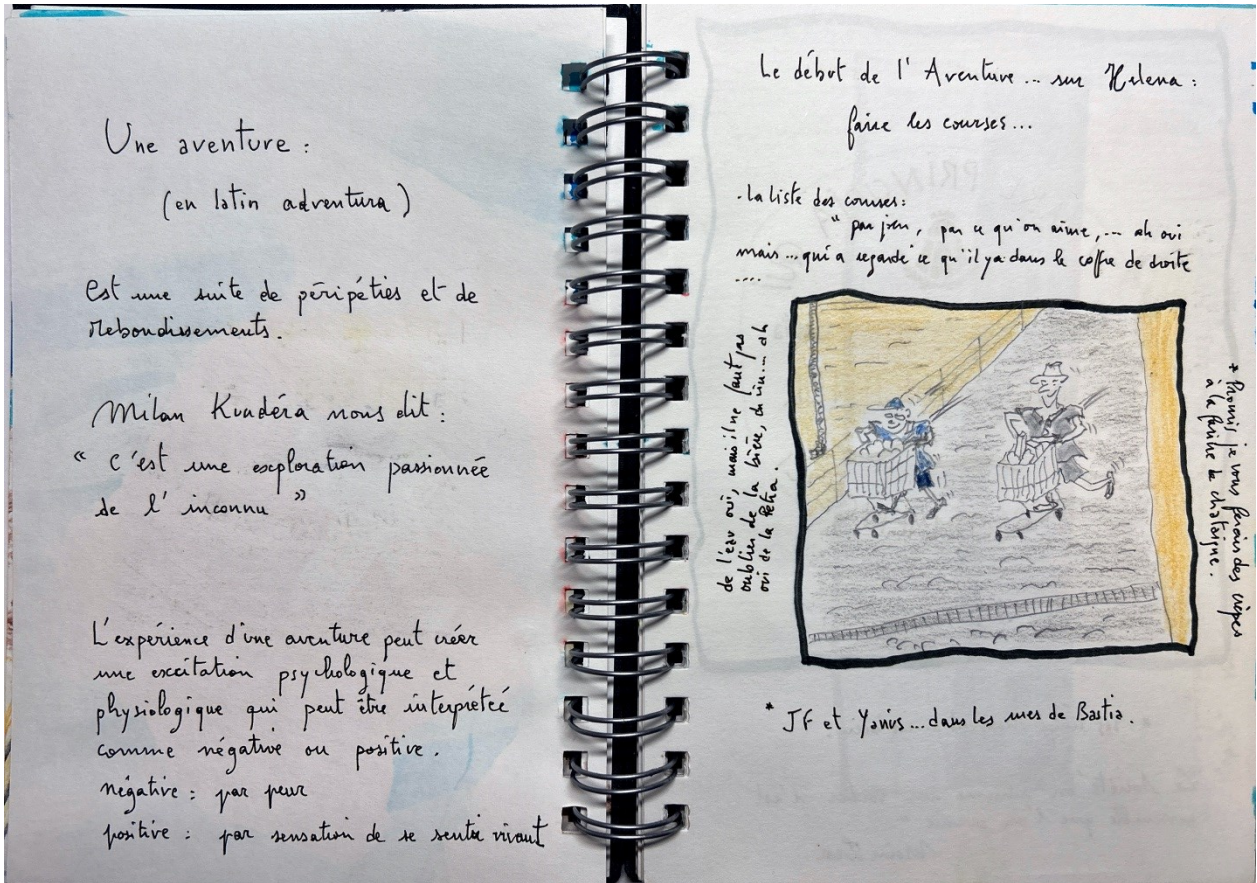 Une aventure :
(en latin adventura)
Est une suite de péripéties et de
rebondissements.
Milan Kundéra nous dit :
" C'est une exploration passionnée
de l' inconnu "
L'expérience d'une aventure peut créer
une excitation psychologique et
physiologique qui peut être interprétée
comme négative ou positive.
négative : par peur
positive : par sensation de se sentir vivant
Le début de l' Aventure... sur Helena :
faire les courses...
- La liste des courses :
" par jour, par ce qu'on aime,... ah oui
mais... qui a regardé ce qu'il y a dans le coffre de droite
....
de l'eau oui, mais il ne faut pas
oublier de la bière, du vin... ah
oui de la Pétra.
* Promis je vous ferais des crêpes
à la farine de châtaigne.
* JF et Yanis... dans les rues de Bastia.